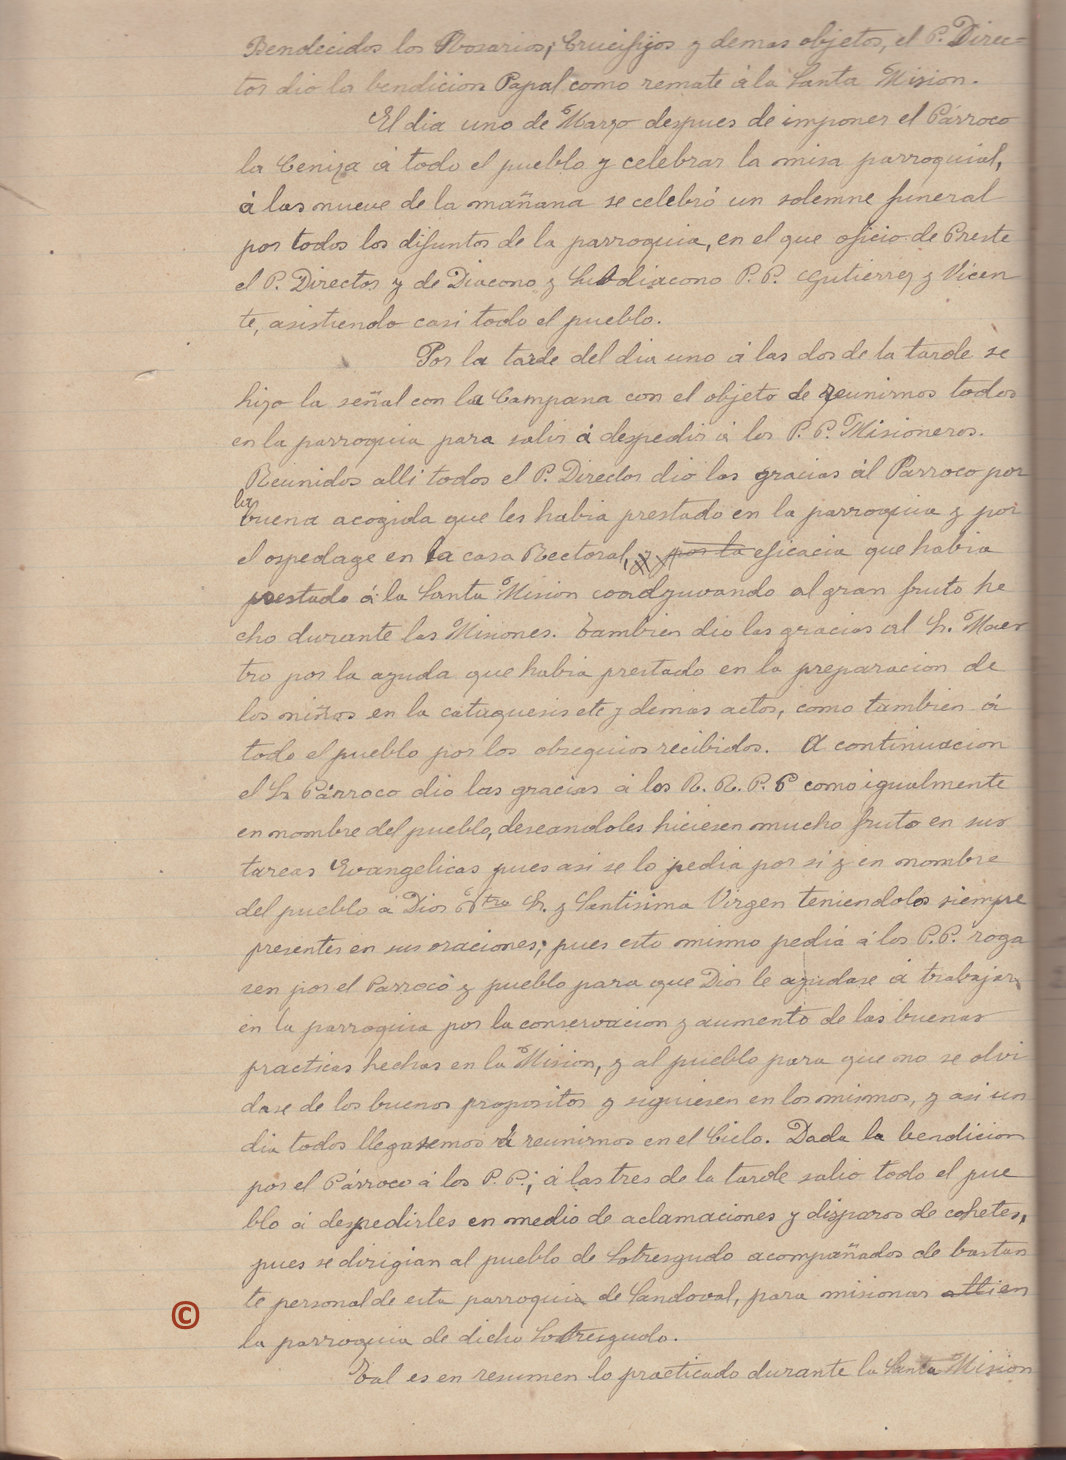 Bendecidos los Rosarios, Crucifijos y demas objetos, el P. Direc=
tor dio la bendicion Papal como remate á la Santa Mision.
El dia uno de Marzo despues de imponer el Párroco
la Ceniza á todo el pueblo y celebrar la misa parroquial,
á las nueve de la mañana se celebró un solemne funeral
por todos los difuntos de la parroquia, en el que oficio de Preste
el P. Director y de Diacono y Subdiacono P. P. Gutierrez y Vicen
te, asistiendo casi todo el pueblo.
Por la tarde del dia uno á las dos de la tarde se
hizo la señal con la Campana con el objeto de reunirnos todos
en la parroquia para salir á despedir á los P. P. Misioneros.
Reunidos alli todos el P. Director dió las gracias ál Parroco por
la
buena acogida que les habia prestado en la parroquia y por
el ospedage en la casa Rectoral, y por la eficacia que habia
prestado á la Santa Mision coadyuvando al gran fruto he
cho durante las Misiones. Tambien dio las gracias al Sr. Maes
tro por la ayuda que habia prestado en la preparacion de
los niños en la cataquesis etc y demas actos, como tambien á
todo el pueblo por los obsequios recibidos. A continuacion
el Sr Párroco dió las gracias á los R. R. P. P como igualmente
en nombre del pueblo, deseandoles hiciesen mucho fruto en sus
tareas Evangelicas pues asi se lo pedia por si y en nombre
del pueblo á Dios Ntro Sr. y Santisima Virgen teniendolos siempre
presentes en sus oraciones; pues esto mismo pedia á los P.P. roga
sen por el Parroco y pueblo para que Dios le ayudase á trabajar
en la parroquia por la conservacion y aumento de las buenas
practicas hechas en la Mision, y al pueblo para que no se olvi
dase de los buenos propositos y siguiesen en los mismos, y asi un
dia todos llegasemos á reunirnos en el Cielo. Dada la bendicion
por el Párroco á los P. P.; á las tres de la tarde salió todo el pue
blo á despedirles en medio de aclamaciones y disparos de cohetes,
pues se dirigian al pueblo de Sotresgudo acompañados de bastan
te personal de esta parroquia de Sandoval, para misionar alli en
la parroquia de dicho Sotresgudo.
Tal es en resumen lo practicado durante la Santa Mision
©